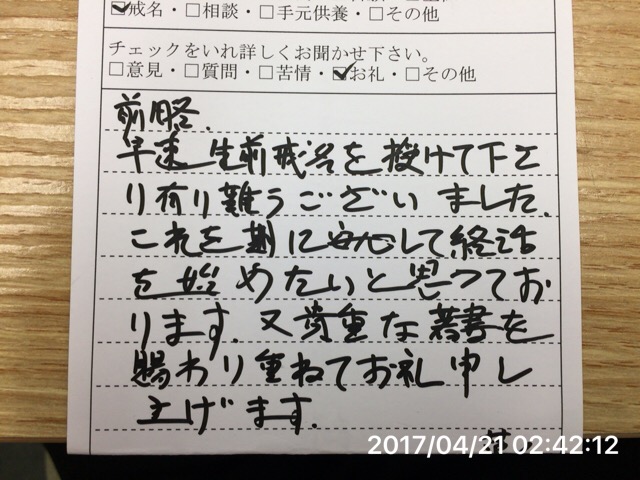 ☑戒名・□相談・□手元供養・□その他
チェックをいれ詳しくお聞かせ下さい。
□意見・□質問・□苦情・☑お礼・□その他
前略.
早速生前戒名を授けて下さ
り有り難うございました.
これを期に安心して終活
を始めたいと思つてお
ります.又貴重な著書を
賜わり重ねてお礼申し
上げます.
2017/04/21 02:42:12